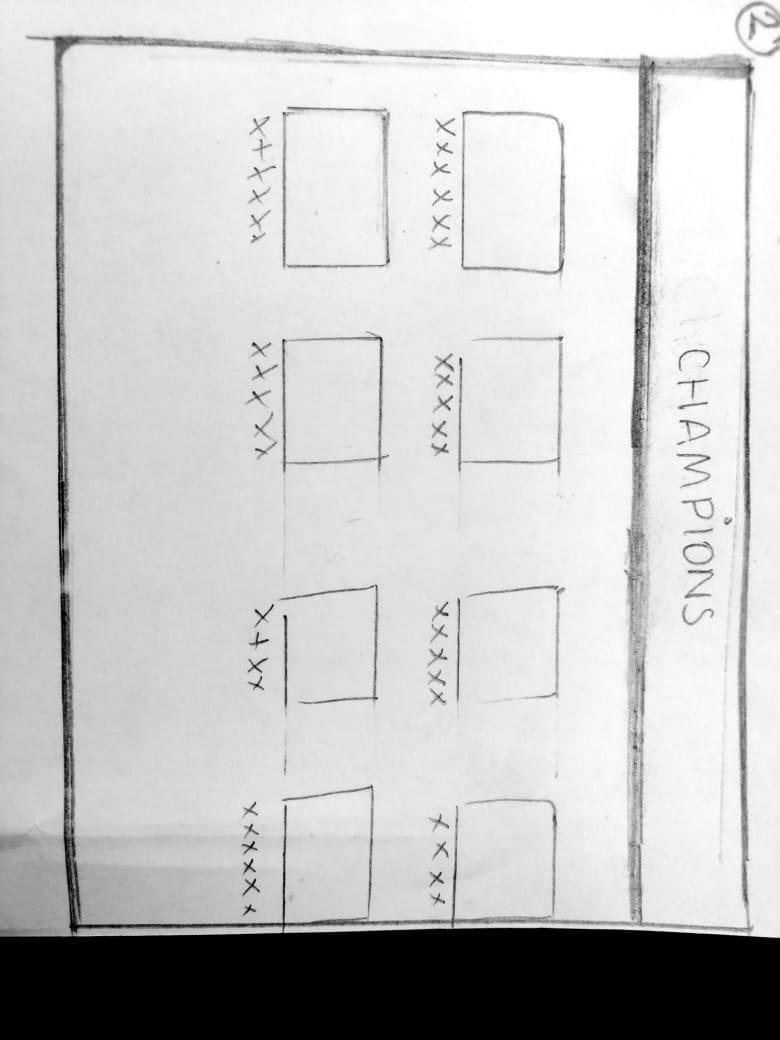 ②
CHAMPIONS
xxxxxx xxxxx xxxxx xxxx
xxxxxx xxxxx xxxx xxxxxx